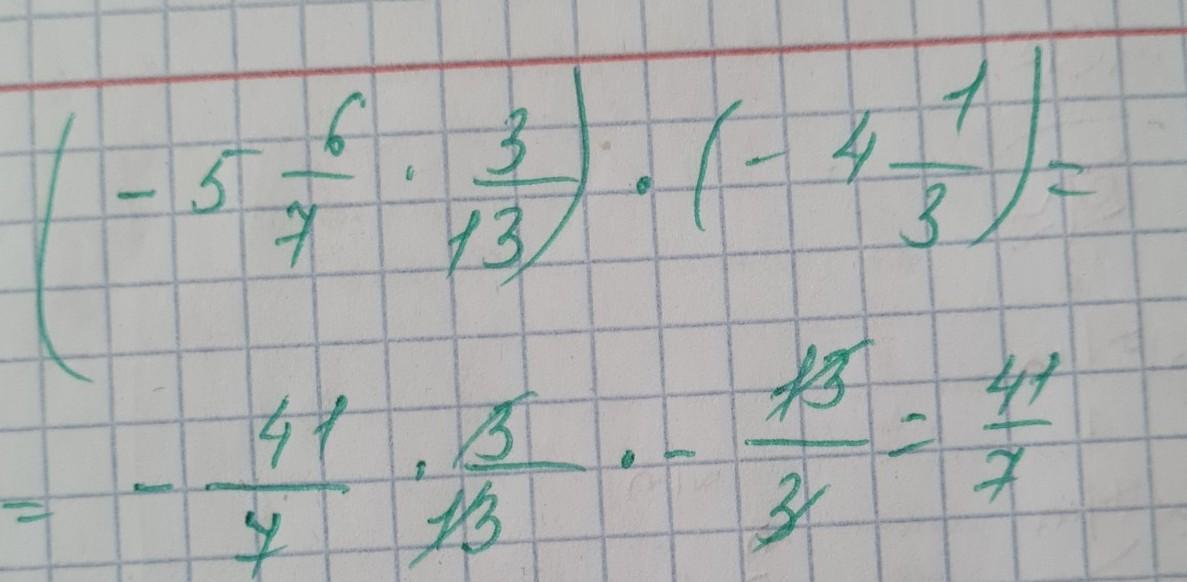 (- 5 6/7 · 3/13) · (- 4 1/3) =
= - 41/7 · 3/13 · - 13/3 = 41/7